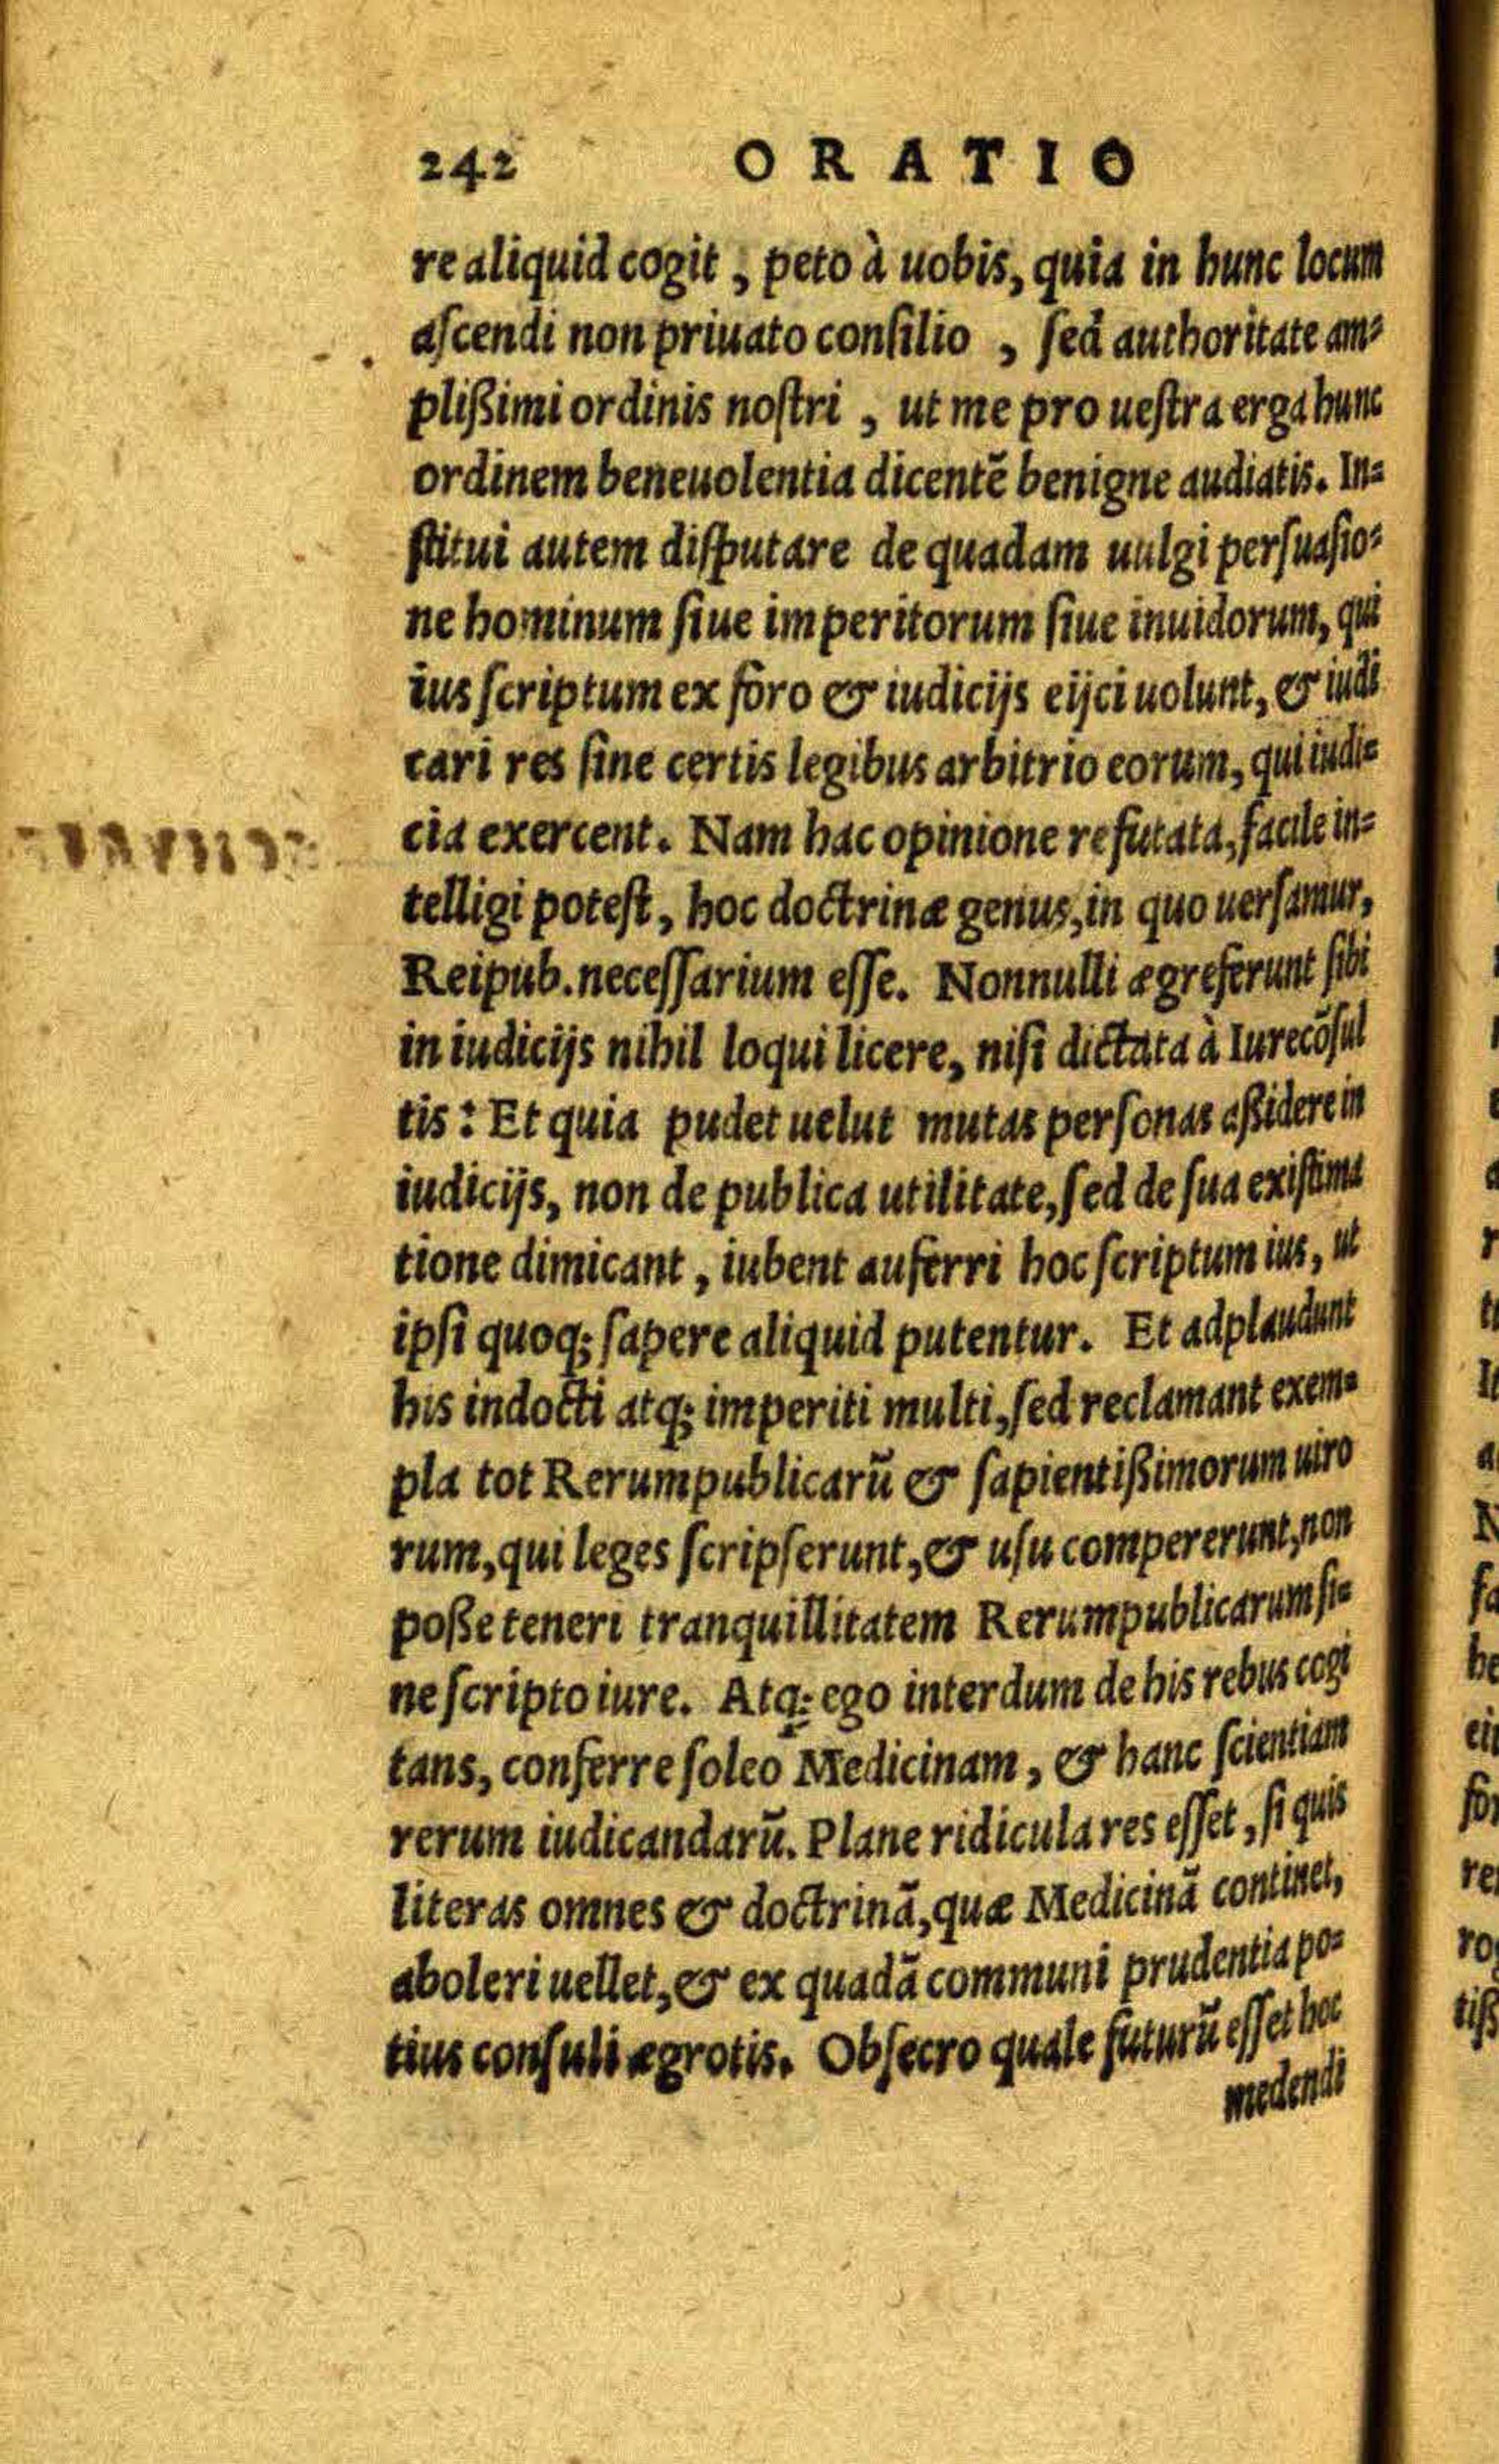 242 ORATIO
re aliquid cogit, peto à uobis, quia in hunc locum
ascendi non priuato consilio, sed authoritate am=
plißimi ordinis nostri, ut me pro uestra erga hunc
ordinem beneuolentia dicentē benigne audiatis. In=
stitui autem disputare de quadam uulgi persuasio=
ne hominum siue imperitorum siue inuidorum, qui
ius scriptum ex foro & iudicijs eijci uolunt, & iudi
cari res sine certis legibus arbitrio eorum, qui iudi=
cia exercent. Nam hac opinione refutata, facile in=
telligi potest, hoc doctrinæ genus, in quo uersamur,
Reipub. necessarium esse. Nonnulli ægre ferunt sibi
in iudicijs nihil loqui licere, nisi dictata à Iurecōsul
tis: Et quia pudet uelut mutas personas aßidere in
iudicijs, non de publica utilitate, sed de sua existima
tione dimicant, iubent auferri hoc scriptum ius, ut
ipsi quoq; sapere aliquid putentur. Et adplaudunt
his indocti atq; imperiti multi, sed reclamant exem=
pla tot Rerumpublicarū & sapientißimorum uiro
rum, qui leges scripserunt, & usu compererunt, non
poße teneri tranquillitatem Rerumpublicarum si=
ne scripto iure. Atq; ego interdum de his rebus cogi
tans, conferre soleo Medicinam, & hanc scientiam
rerum iudicandarū. Plane ridicula res esset, si quis
literas omnes & doctrinā, quæ Medicinā continet,
aboleri uellet, & ex quadā communi prudentia po=
tius consuli ægrotis. Obsecro quale futurū esset hoc
medendi